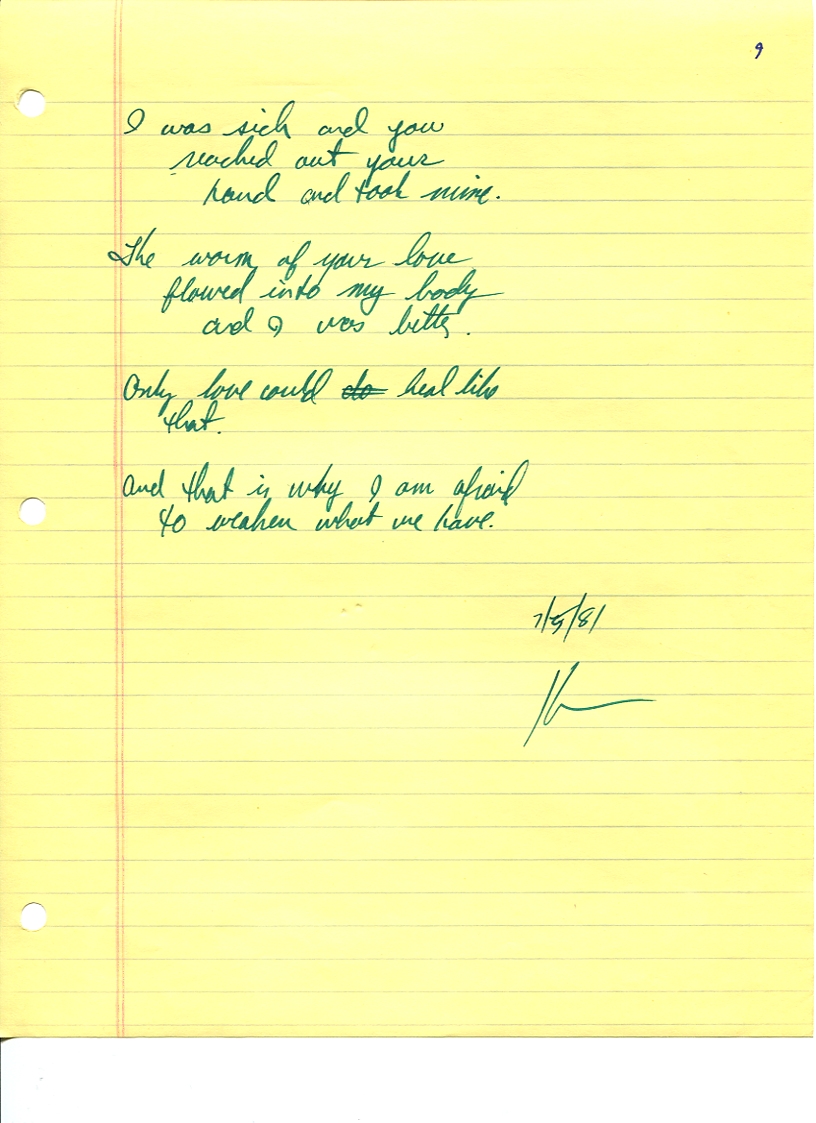 9
I was sick and you
reached out your
hand and took mine.
The warm of your love
flowed into my body
and I was better.
Only love could do heal like
that.
And that is why I am afraid
to weaken what we have.
7/5/81